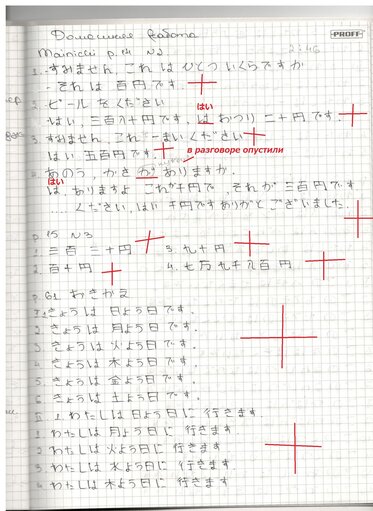 Домашнее работа
Mainichi p.14 N2
2:46
PROFF
1. すみません これ は ひとつ いくらですか
- それ は 百円です.
2. ビール を ください
はい
はい, 三百八十円です. は おつり 二十円です.
3. すみません, これ 一まい ください
はい 五百円です.
в разговоре опустили
4. あのう, かさ が ありますか.
はい
は, ありますよ これが千円です, それ が 三百円です
.... ください, はい 千円ですありがとございました.
p. 15 N3
1. 二百 三十円 3. 九十円
2. 百十円 4. 七万 九千八百円
p. 61. かきかえ
I 1. きょうは 日よう日です.
2 きょうは 月よう日です.
3 きょうは 火よう日です.
4 きょうは 木よう日です.
5 きょうは 金よう日です.
6 きょうは 土よう日です.
II 1 わたしは 日よう日に 行きます
2 わたしは 月よう日に 行きます
わたしは 火よう日に 行きます
3 わたしは 水よう日に 行きます
4 わたしは 木よう日に 行きます